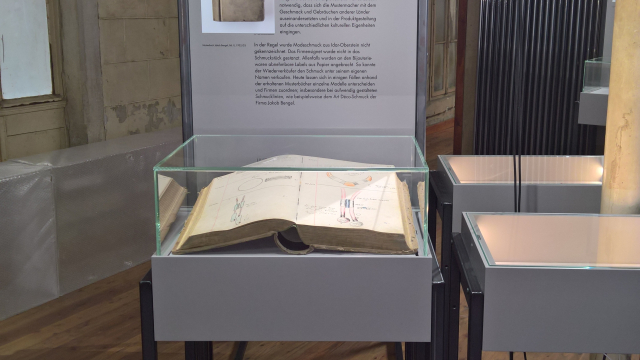 notwendig, dass sich die Mustermacher mit dem
Geschmack und Gebräuchen anderer Länder
auseinandersetzten und in der Produktgestaltung
auf die unterschiedlichen kulturellen Eigenheiten
eingingen.
In der Regel wurde Modeschmuck aus Idar-Oberstein nicht
gekennzeichnet. Das Firmensignet wurde nicht in das
Schmuckstück gestanzt. Allenfalls wurden an den Bijouterie
waren abnehmbare Labels aus Papier angebracht. So konnte
der Wiederverkäufer den Schmuck unter seinem eigenen
Namen verkaufen. Heute lassen sich in einigen Fällen anhand
der erhaltenen Musterbücher einzelne Modelle unterscheiden
und Firmen zuordnen, insbesondere bei aufwendig gestalteten
Schmuckstücken, wie beispielsweise dem Art Déco-Schmuck der
Firma Jakob Bengel.